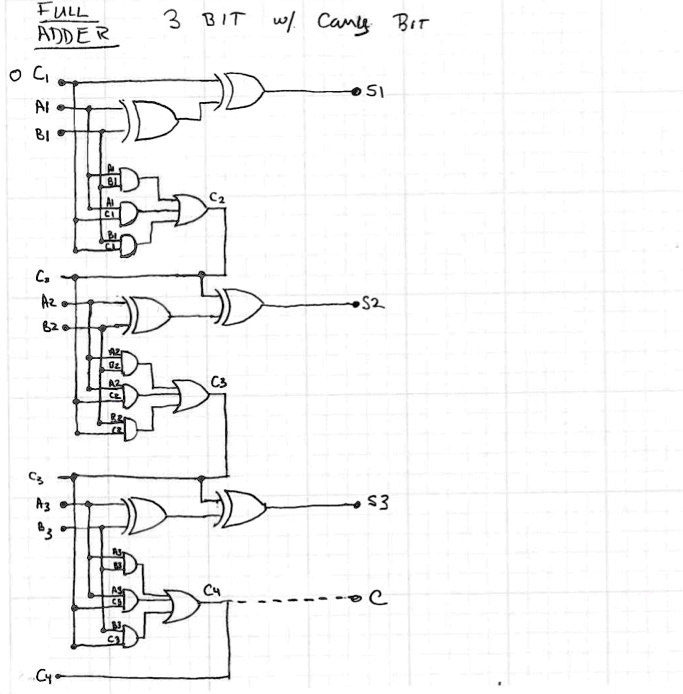 FULL
ADDER
3 BIT w/ Carry BIT
0 C1
S1
A1
B1
A1
B1
A1
C1
B1
C1
C2
C2
A2
S2
B2
A2
B2
A2
C2
C3
B2
C2
C3
A3
S3
B3
A3
B3
A3
C3
C4
C
B3
C3
C4